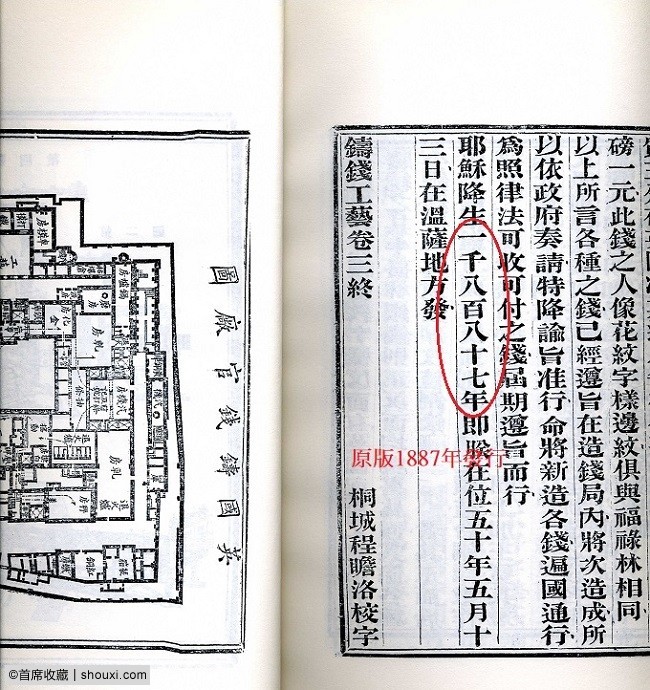 磅一元此錢之人像花紋字樣邊紋俱與福祿林相同
以上所言各種之錢已經遵旨在造錢局內將次造成所
以依政府奏請特降諭旨准行命將新造各錢遍國通行
爲照律法可收可付之錢屆期遵旨而行
耶穌降生一千八百八十七年即朕在位五十年五月十
三日在溫薩地方發
鑄錢工藝卷三終 桐城程瞻洛校字
原版1887年發行
英國鑄錢官廠圖
軋房
軋房
汽機房
©首席收藏 | shouxi.com